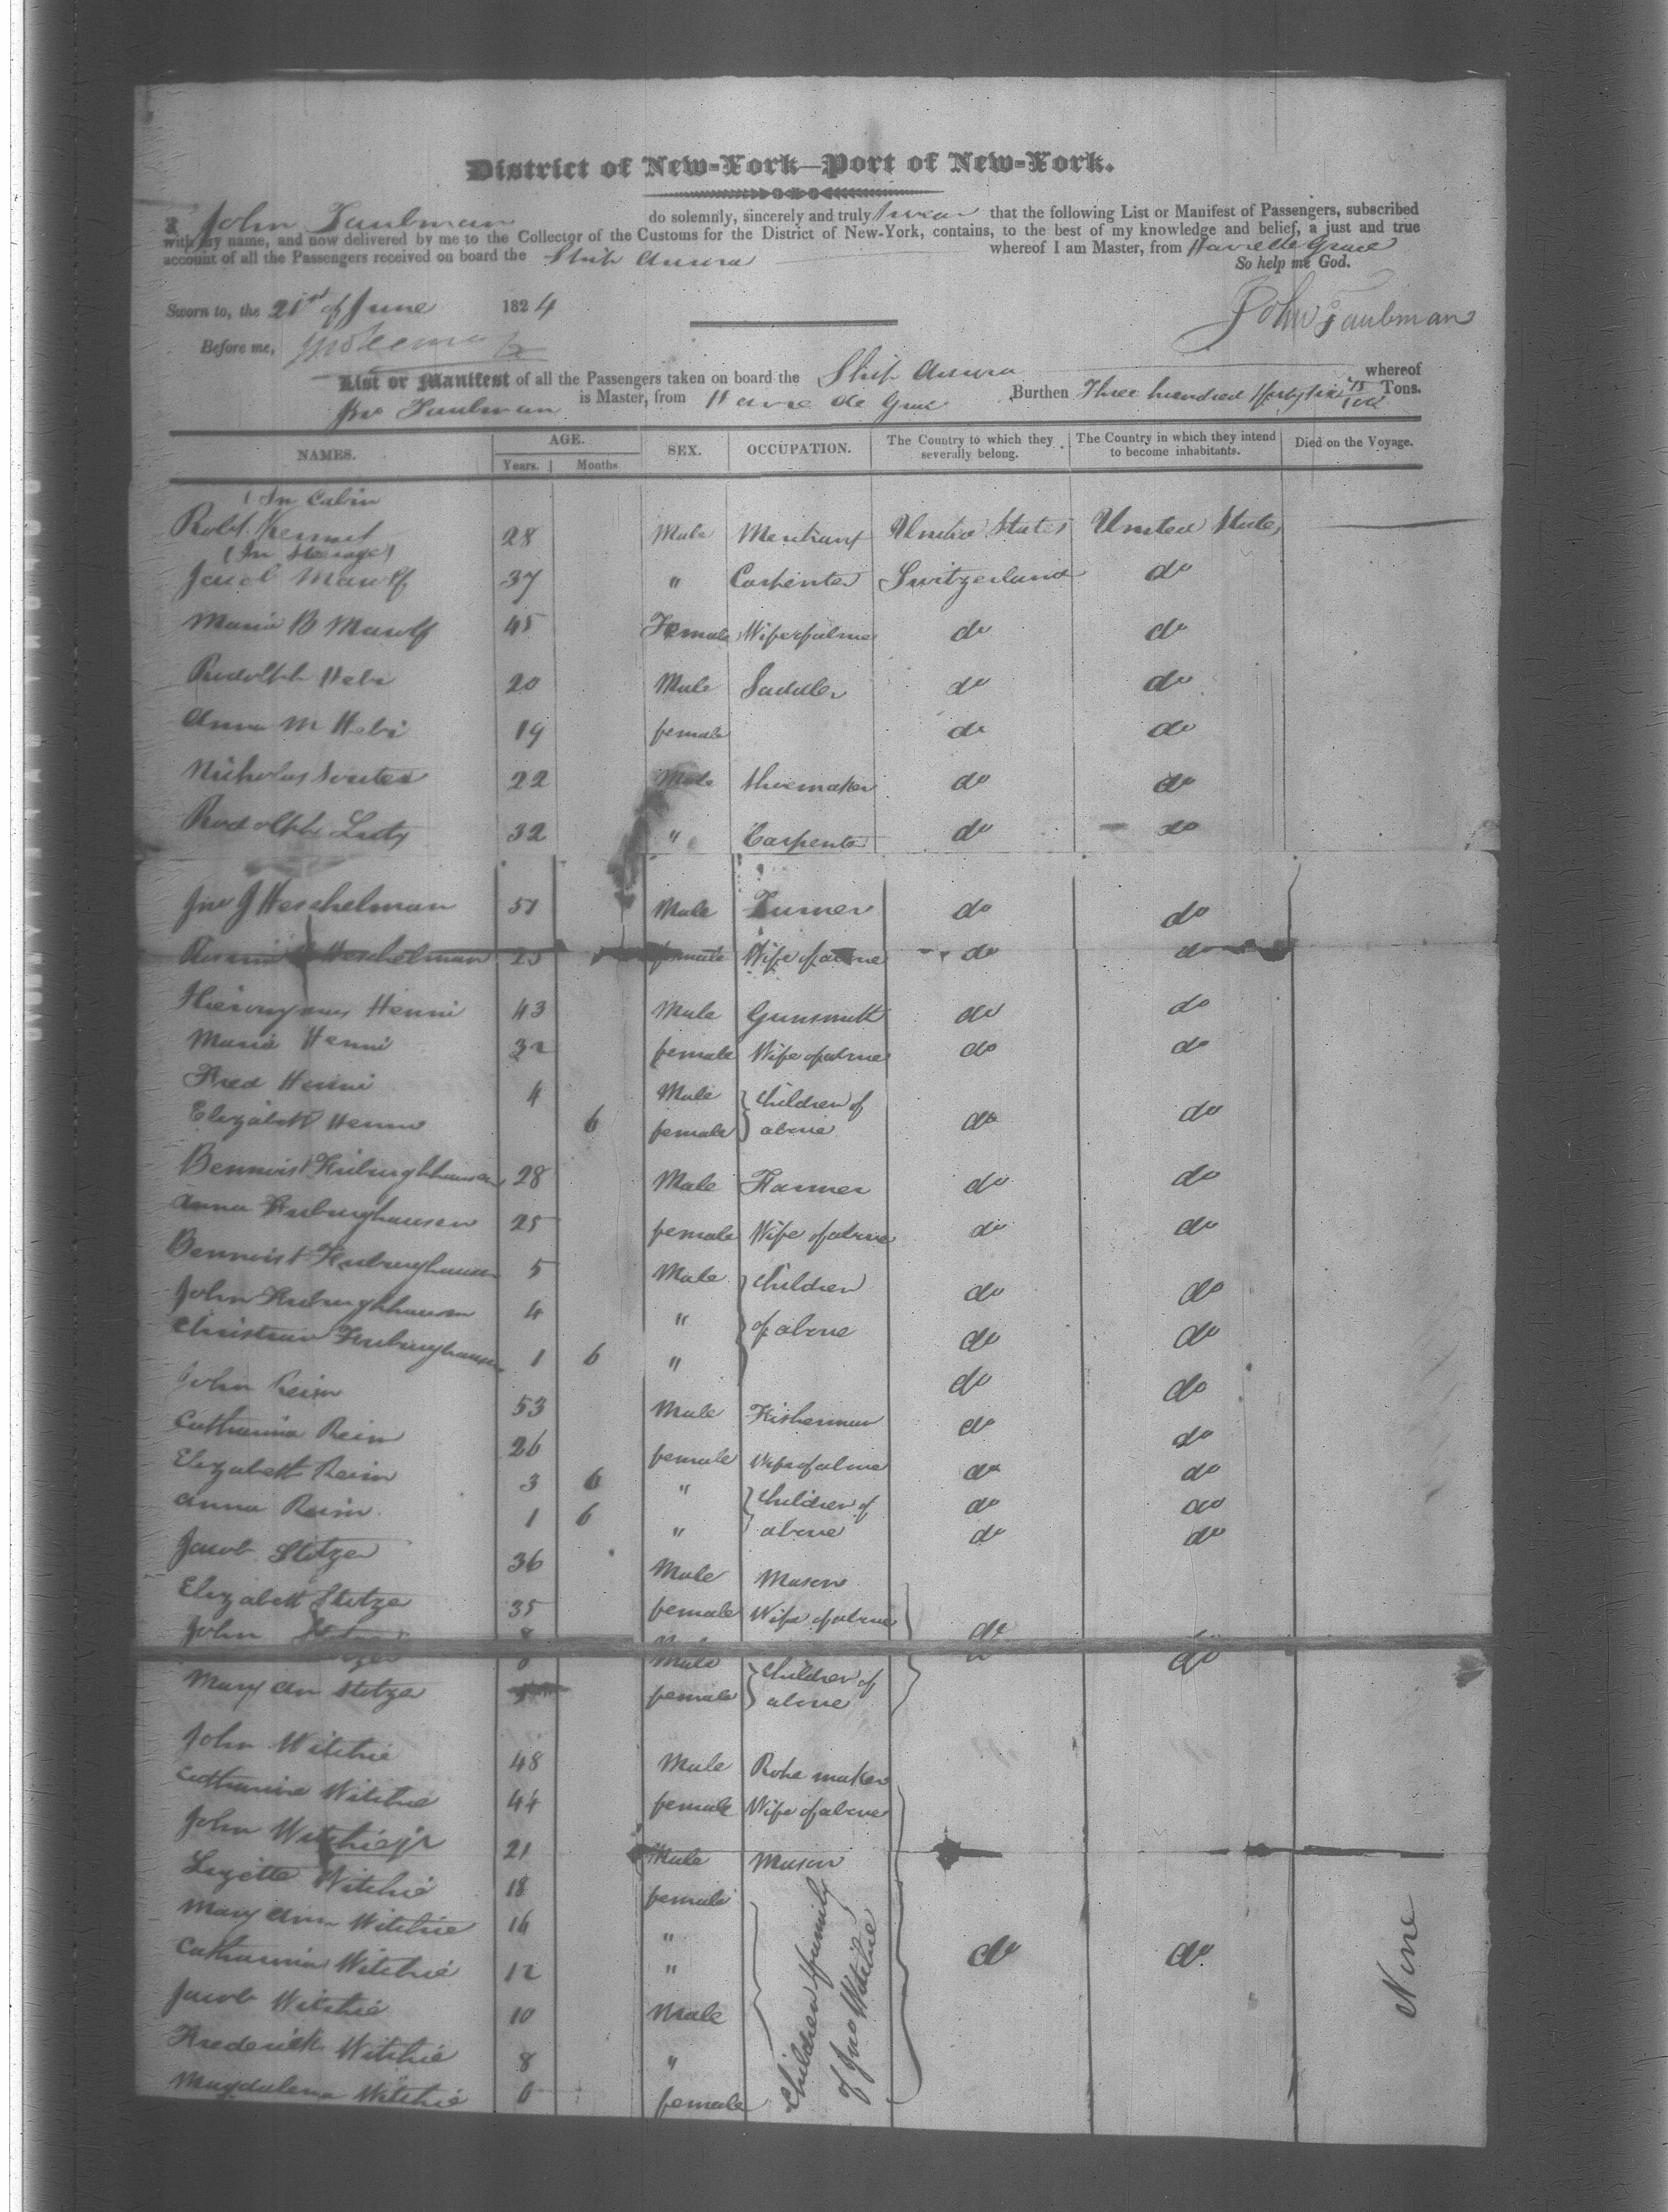 District of New-York—Port of New-York.
I John Taubman do solemnly, sincerely and truly swear that the following List or Manifest of Passengers, subscribed
with my name, and now delivered by me to the Collector of the Customs for the District of New-York, contains, to the best of my knowledge and belief, a just and true
account of all the Passengers received on board the Ship Aurora whereof I am Master, from Havre de Grace
So help me God.
Sworn to, the 21st of June 1824
John Taubman
Before me,
List or Manifest of all the Passengers taken on board the Ship Aurora whereof
Jno Taubman is Master, from Havre de Grace Burthen Three hundred & forty six 75/100 Tons.
NAMES. AGE. Years. Months SEX. OCCUPATION. The Country to which they severally belong. The Country in which they intend to become inhabitants. Died on the Voyage.
(In Cabin
Robt. 28 Male Merchant United States United States
(In Steerage)
Jacob Marolf 37 " Carpenter Switzerland do
Maria B Marolf 45 Female Wife of above do do
Rudolph Hebi 20 Male Saddler do do
Anna M Hebi 19 female do do
Nicholas Souter 22 Male Shoemaker do do
Rudolph 32 " Carpenter do do
Jno J Heschelman 51 Male Turner do do
Heschelman 25 female Wife of above do do
Hieronymus Henni 43 Male Gunsmith do do
Maria Henni 32 female Wife of above do do
Fred Henni 4 Male Children of
Elizabeth Henni 6 female above do do
Bennoist Friburghhausen 28 Male Farmer do do
Anna Friburghausen 25 female Wife of above do do
Bennoist Friburghausen 5 Male Children do do
John Friburghhausen 4 " of above do do
Christian Friburghausen 1 6 " do do
John Rein 53 Male Fisherman do do
Catharina Rein 26 female Wife of above do do
Elizabeth Rein 3 6 " Children of do do
Anna Rein 1 6 " above do do
Jacob Stotzer 36 Male Mason
Elizabeth Stotzer 35 female Wife of above do do
John Stotzer 8 Male Children of
Mary An Stotzer female above
John Witchie 48 Male Rope maker
Catharina Witchie 44 female Wife of above
John Witchie jr 21 Male Mason
Lizette Witchie 18 female
Mary Ann Witchie 16 "
Catharina Witchie 12 " do do
Jacob Witchie 10 Male
Frederick Witchie 8 "
Magdalena Witchie 6 female
Children & family
of Jno Witchie
None